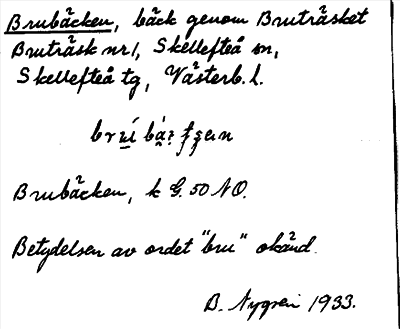 Brubäcken, bäck genom Bruträsket
Bruträsk nr 1, Skellefteå sn,
Skellefteå tg, Västerb. l.
Brubäcken, k G. 50 NO.
Betydelsen av ordet "bru" okänd.
B. Nygren 1933.